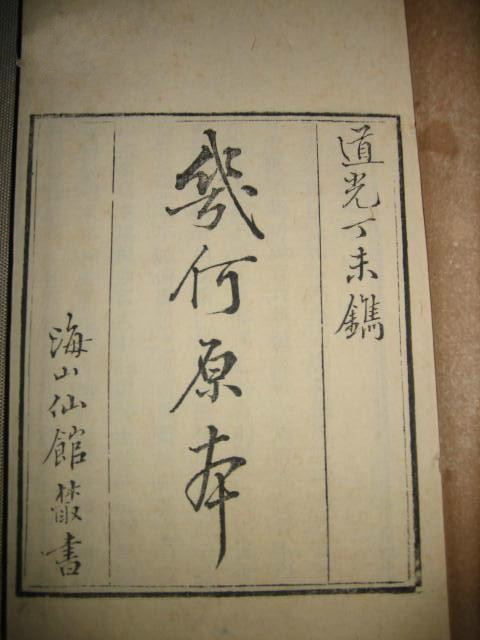 道光丁未鐫
幾何原本
海山仙館叢書